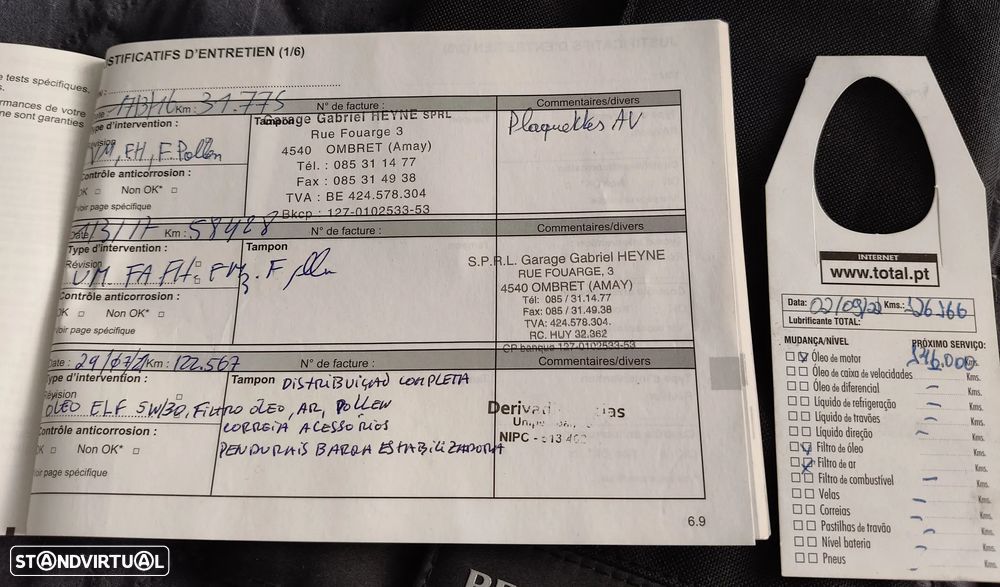 JUSTIFICATIFS D'ENTRETIEN (1/6)
tests spécifiques.
rmances de votre
ne sont garanties
Km : 31.775
N° de facture :
Commentaires/divers
Type d'intervention :
Révision
VM, FH, F. Pollen
Contrôle anticorrosion :
OK □ Non OK* □
Voir page spécifique
Tampon
Garage Gabriel HEYNE SPRL
Rue Fouarge 3
4540 OMBRET (Amay)
Tél. : 085 31 14 77
Fax : 085 31 49 38
TVA : BE 424.578.304
Bkcp : 127-0102533-53
Plaquettes AV
Km : 58428
N° de facture :
Commentaires/divers
Type d'intervention :
Révision
VM FA FH
Contrôle anticorrosion :
OK □ Non OK* □
Voir page spécifique
Tampon
S.P.R.L. Garage Gabriel HEYNE
RUE FOUARGE, 3
4540 OMBRET (AMAY)
Tél: 085 / 31.14.77
Fax: 085 / 31.49.38
TVA: 424.578.304.
RC. HUY 32.362
CP banque 127-0102533-53
Date : 29/07/21 Km : 122.567
N° de facture :
Commentaires/divers
Type d'intervention :
Révision
ÓLEO ELF 5W/30, FILTRO ÓLEO, AR, POLLEN
Contrôle anticorrosion :
OK □ Non OK* □
Voir page spécifique
Tampon
DISTRIBUIÇÃO COMPLETA
CORREIA ACESSORIOS
PENDURAIS BARRA ESTABILIZADORA
NIPC - 513
6.9
INTERNET
www.total.pt
Data: 02/09/22 Kms.: 126.166
Lubrificante TOTAL:
MUDANÇA/NÍVEL
PRÓXIMO SERVIÇO:
Óleo de motor Kms.
Óleo de caixa de velocidades Kms.
Óleo de diferencial Kms.
Líquido de refrigeração Kms.
Líquido de travões Kms.
Líquido direção Kms.
Filtro de óleo Kms.
Filtro de ar Kms.
Filtro de combustível Kms.
Velas Kms.
Correias Kms.
Pastilhas de travão Kms.
Nível bateria Kms.
Pneus Kms.
STANDVIRTUAL